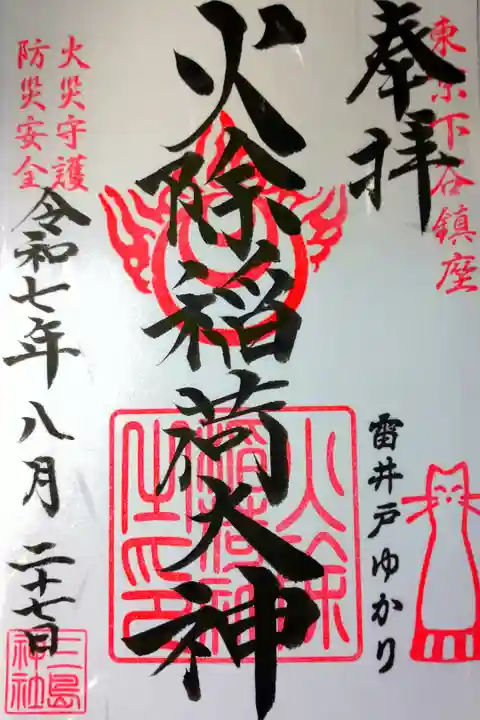 奉拝
東京下谷鎮座
雷井戸ゆかり
火除稲荷大神
火災守護
防災安全
令和七年八月二十七日
三島
神社